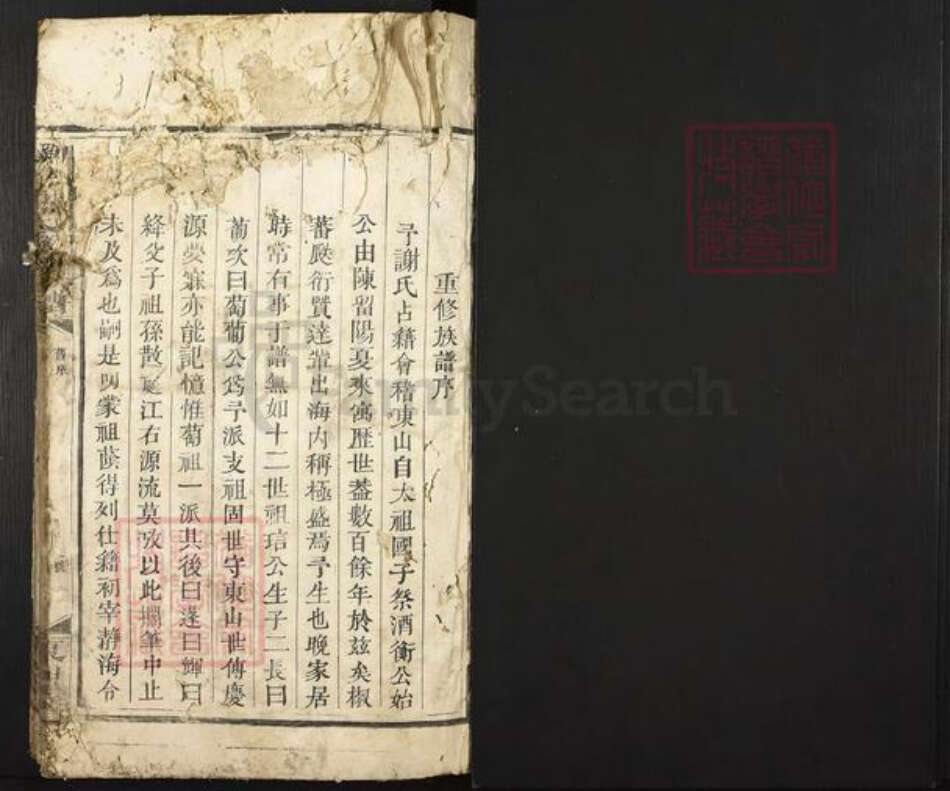 重修族譜序
予謝氏占籍會稽東山自太祖國子祭酒衡公始
公由陳留陽夏來寓歷世葢數百餘年於兹矣椒
蕃瓞衍賢達輩出海内稱極盛焉予生也晚家居
時常有事于譜無如十二世祖琣公生子二長曰
蔔次曰萄蔔公爲予派支祖固世守東山世傳慶
源夢寐亦能記憶惟萄祖一派其後曰逢曰輝曰
絳父子祖孫散處江右源流莫攷以此擱筆中止
未及爲也嗣是叨蒙祖蔭得列仕籍初宰靜海令
舊序
FamilySearch